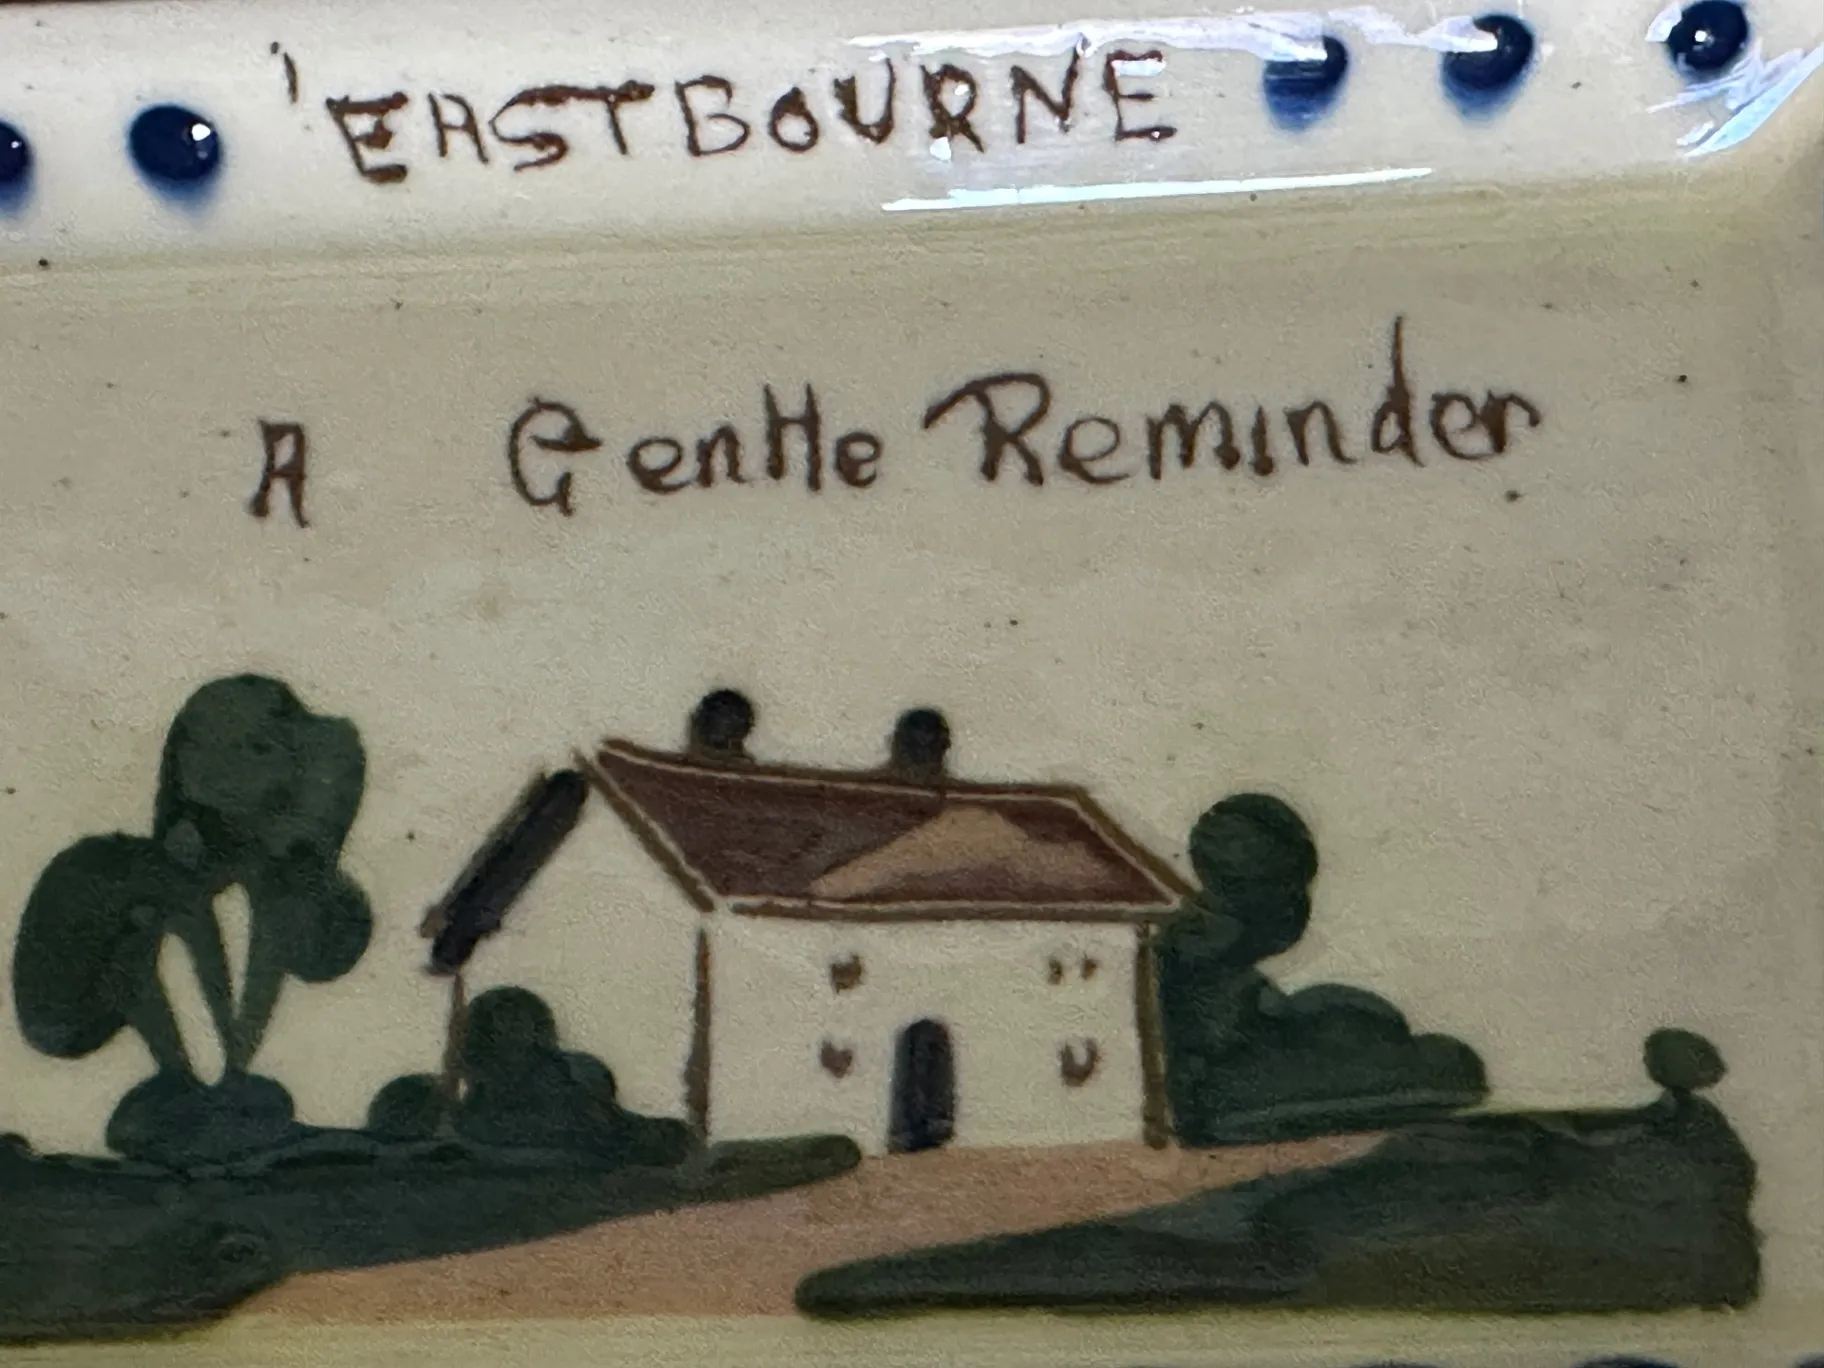 'EASTBOURNE
A Gentle Reminder